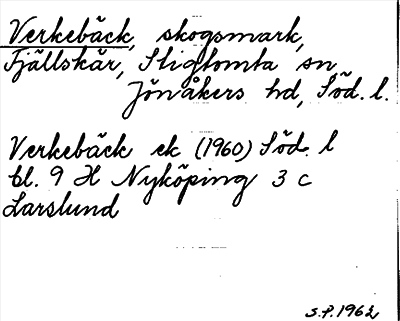 Verkebäck, skogsmark,
Fjällskär, Stigtomta sn
Jönåkers hd, Söd. l.
Verkebäck ek (1960) Söd. l
bl. 9 H Nyköping 3 c
Larslund
S.P. 1962